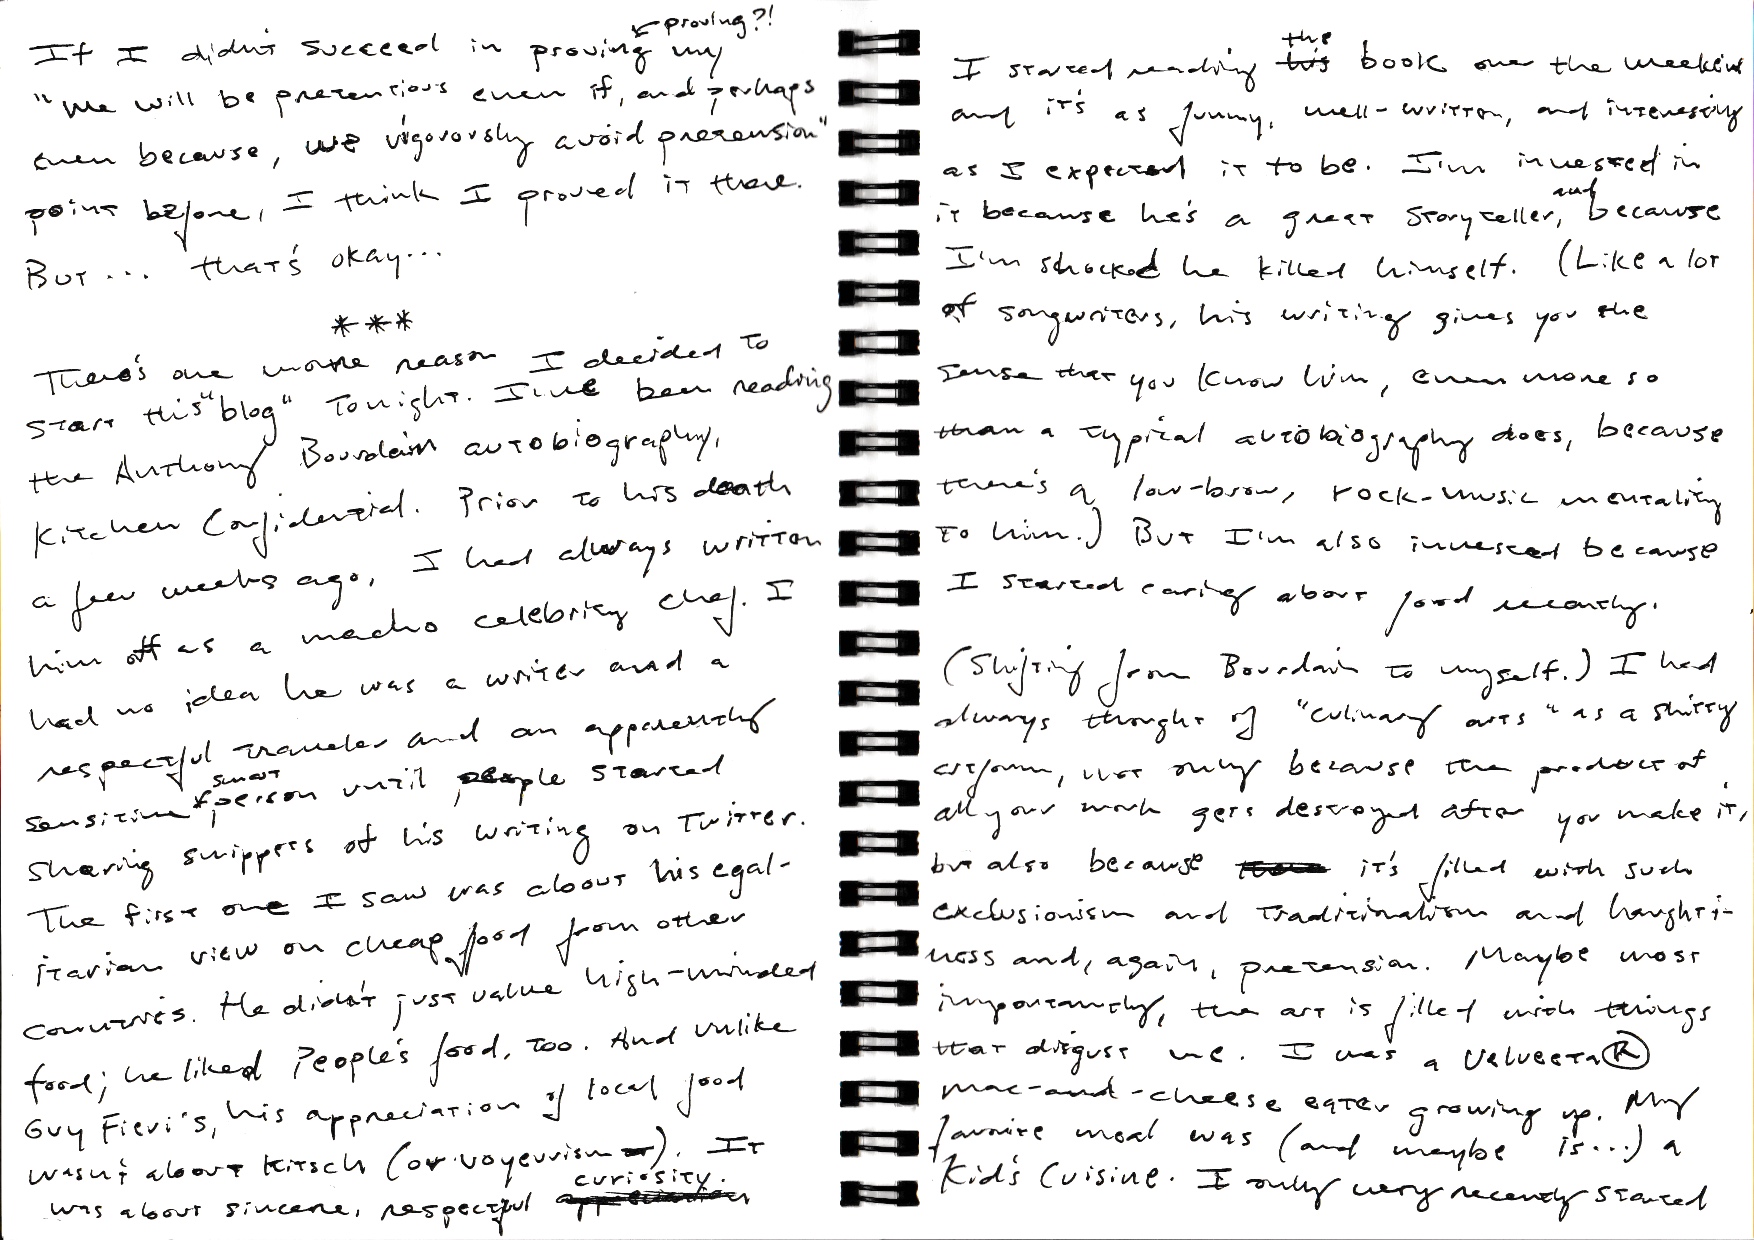 ← proving?!
If I didn't succeed in proving my
"We will be pretentious even if, and perhaps
even because, we vigorously avoid pretension"
point before, I think I proved it there.
But... that's okay...
***
There's one more reason I decided to
start this "blog" tonight. I've been reading
the Anthony Bourdain autobiography,
Kitchen Confidential. Prior to his death
a few weeks ago, I had always written
him off as a macho celebrity chef. I
had no idea he was a writer and a
respectful traveler and an apparently
smart
sensitive person until people started
sharing snippets of his writing on Twitter.
The first one I saw was about his egal-
itarian view on cheap food from other
countries. He didn't just value high-minded
food; he liked People's food, too. And unlike
Guy Fieri's, his appreciation of local food
wasn't about kitsch (or voyeurism). It
curiosity.
was about sincere, respectful appreciation
the
I started reading his book over the weekend
and it's as funny, well-written, and interesting
as I expected it to be. I'm invested in
and
it because he's a great storyteller, because
I'm shocked he killed himself. (Like a lot
of songwriters, his writing gives you the
sense that you know him, even more so
than a typical autobiography does, because
there's a low-brow, rock-music mentality
to him.) But I'm also invested because
I started caring about food recently.
(Shifting from Bourdain to myself.) I had
always thought of "culinary arts" as a shitty
artform, not only because the product of
all your work gets destroyed after you make it,
but also because it's filled with such
exclusionism and traditionalism and haughti-
ness and, again, pretension. Maybe most
importantly, the art is filled with things
that disgust me. I was a Velveeta®
mac-and-cheese eater growing up. My
favorite meal was (and maybe is...) a
Kid's Cuisine. I only very recently started